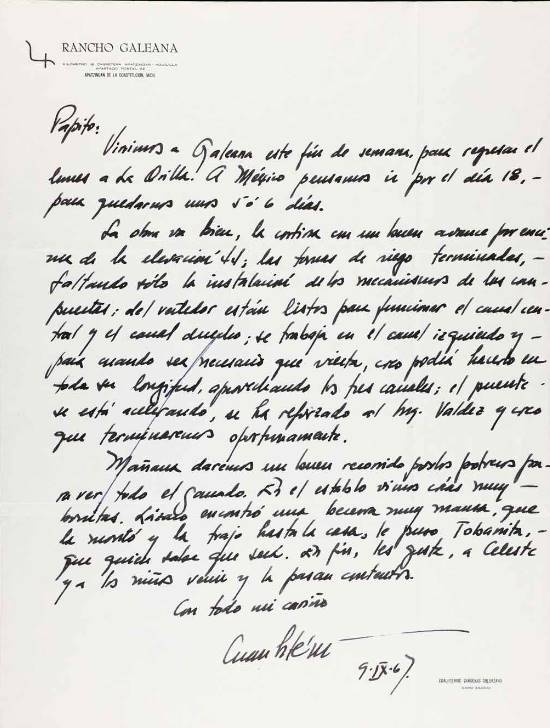 RANCHO GALEANA
KILOMETRO 18 CARRETERA APATZINGAN - AGUILILLA
APARTADO POSTAL 22
APATZINGAN DE LA CONSTITUCION, MICH.
Papito:
Vinimos a Galeana este fin de semana, para regresar el
lunes a La Orilla. A México pensamos ir por el día 18,-
para quedarnos unos 5 ó 6 días.
La obra va bien, la cortina con un buen avance por enci-
ma de la elevación 44; las tomas de riego terminadas,-
faltando sólo la instalación de los mecanismos de las com-
puertas; del vertedor están listos para funcionar el canal cen-
tral y el canal derecho; se trabaja en el canal izquierdo y-
para cuando sea necesario que vierta, creo podrá hacerlo en
toda su longitud, aprovechando los tres canales; el puente-
se está acelerando, se ha reforzado al Ing. Valdez y creo
que terminaremos oportunamente.
Mañana daremos un buen recorrido por los potreros pa-
ra ver todo el ganado. En el establo vimos crías muy-
bonitas. Lázaro encontró una becerra muy mansa, que
la montó y la trajo hasta la casa, le puso Tobanita,-
que quien sabe que será. En fin, les gusta, a Celeste
y a los niños venir y la pasan contentos.
Con todo mi cariño
Cuauhtémoc
9-IX-67.
CUAUHTEMOC CARDENAS SOLORZANO